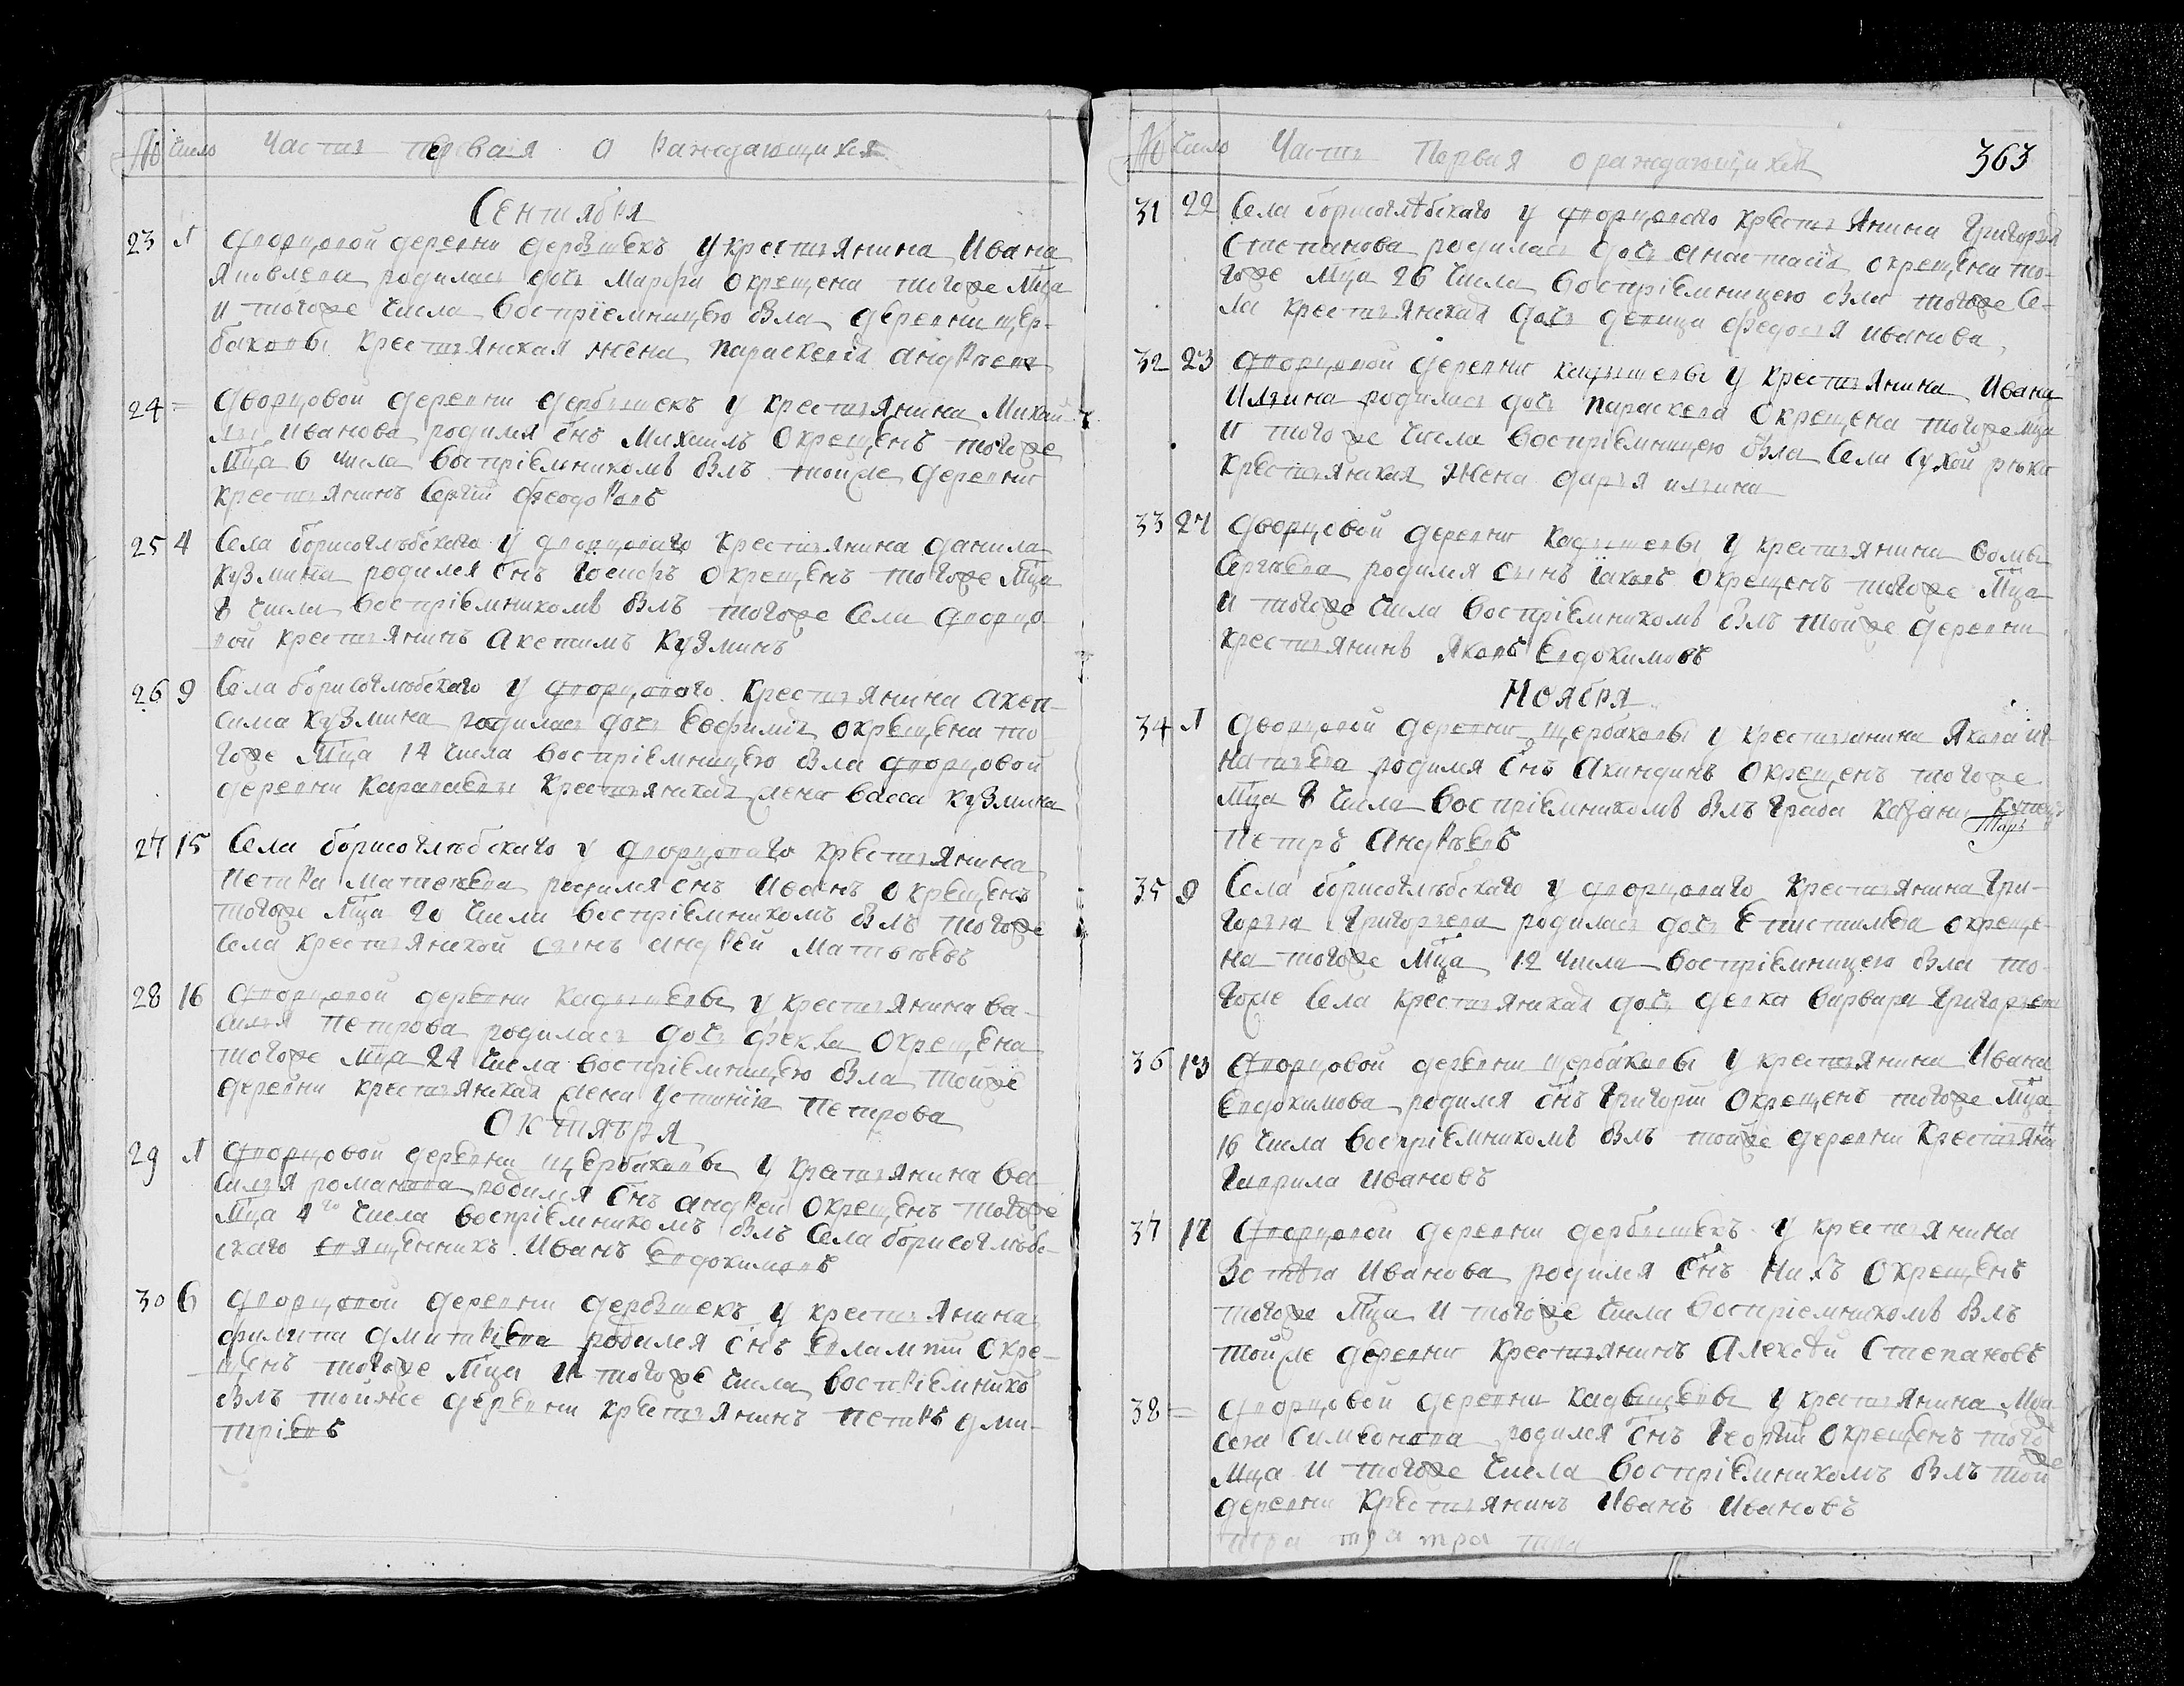 № Число Часть первая о раждающихся
Сентября
23 1 Дворцовой деревни дербышекъ у крестьянина Ивана
Яковлева родилась дочь Марфа окрещена тогоже Мца
и тогоже числа восприемницею была деревни щер-
баковы крестьянская жена параскевiя андрѣева
24 = Дворцовой деревни дербышекъ у крестьянина Михай-
лы Иванова родился снъ Михаилъ окрещенъ тогоже
Мца 6 числа восприемникомъ былъ тойже деревни
крестьянинъ Сергiй Феодоровъ
25 4 Села борисоглѣбскаго у дворцоваго крестьянина данила
кузмина родился снъ Iосифъ окрещенъ тогоже Мца
8 числа восприемникомъ былъ тогоже Села дворцо
вой крестьянинъ Акепсимъ Кузминъ
26 9 Села борисоглѣбскаго у дворцоваго крестьянина акеп-
сима кузмина родилась дочь Евфимiа окрещена то
гоже Мца 14 числа восприемницею была дворцовой
деревни Караваевы крестьянская жена васса кузмина
27 15 Села борисоглѣбскаго у дворцоваго крестьянина
Петра Матвѣева родился снъ Иванъ окрещенъ
тогоже Мца 20 числа восприемникомъ былъ тогоже
Села крестьянской сынъ андрей Матвѣевъ
28 16 Дворцовой деревни кадышевы у крестьянина ва-
силья Петрова родилась дочь фекла окрещена
тогоже Мца 24 числа восприемницею была тойже
деревни крестьянская жена устинiа Петрова
Октября
29 1 Дворцовой деревни щербаковы у крестьянина ва
силья романова родился снъ андрей окрещенъ тогоже
Мца 4го числа восприемникомъ былъ Села борисоглѣб-
скаго священникъ Иванъ Евдокимовъ
30 6 дворцовой деревни дербышекъ у крестьянина
филипа дмитрiева родился снъ Евлампiй окре-
щенъ тогоже Мца и тогоже числа восприемнико
былъ тойже деревни крестьянинъ петръ дми-
трiевъ
№ Число Часть Первая о раждающихся 363
31 22 Села борисоглѣбскаго у дворцоваго крестьянина Григорья
Степанова родилась дочь анастасiа окрещена то-
гоже Мца 26 числа восприемницею была тогоже Се-
ла крестьянская дочь девица федосья иванова
32 23 дворцовой деревни кадышевы у крестьянина Ивана
Ильина родилась дочь параскева окрещена тогоже Мца
и тогоже числа восприемницею была Села сухой рѣки
крестьянская жена дарья ильина
33 27 дворцовой деревни кадышевы у крестьянина Fомы
Сергѣева родился сынъ iаковъ окрещенъ тогоже Мца
и тогоже числа восприемникомъ былъ тойже деревни
крестьянинъ Яковъ Евдокимовъ
Ноября
34 1 дворцовой деревни щербаковы у крестьянина Якова иг-
натьева родился снъ Акиндинъ окрещенъ тогоже
Мца 8 числа восприемникомъ былъ града казани купецъ
Петръ Андрѣевъ
35 9 Села борисоглѣбскаго у дворцоваго крестьянина Гри-
горья Григорьева родилась дочь Епистимiа окреще-
на тогоже Мца 12 числа восприемницею была то-
гоже Села крестьянская дочь девка варвара Григорьева
36 13 дворцовой деревни щербаковы у крестьянина Ивана
Евдокимова родился снъ Григорiй окрещенъ тогоже Мца
16 числа восприемникомъ былъ тойже деревни крестьяни
Гаврила Ивановъ
37 17 дворцовой деревни дербышекъ у крестьянина
Зотѣа Иванова родился снъ окрещенъ
тогоже Мца и тогоже числа восприемникомъ былъ
тойже деревни крестьянинъ Алексѣй Степановъ
38 = дворцовой деревни кадышевы у крестьянина Мои
сеа Симеонова родился снъ Георгiй окрещенъ тогоже
Мца и тогоже числа восприемникомъ былъ той
деревни крестьянинъ Иванъ Ивановъ
тра тра тра тра